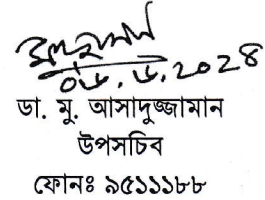 ০৬.৬.2024
ডা. মু. আসাদুজ্জামান
উপসচিব
ফোনঃ ৯৫১১১৮৮